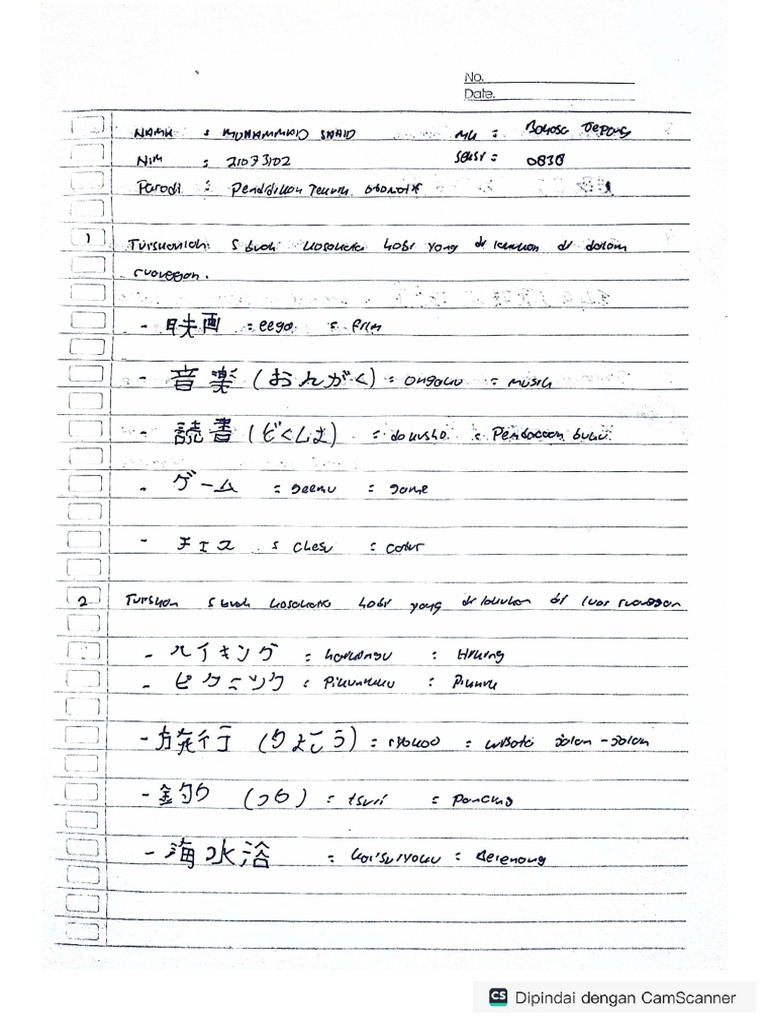 No.
Date.
NAMA : MUHAMMAD SAHID MK : Bahasa Jepang
Nim : 21073102 Seksi : 0838
Parodi : Pendidikan Teknik otomotif
1 Tuliskanlah 5 buah kosakata hobi yang di lakukan di dalam
ruangan.
- 映画 = eega = film
- 音楽 (おんがく) = ongaku = musik
- 読書 (どくしょ) = dokusho = Pembacaan buku
- ゲーム = geemu = game
- チェス : chesu : catur
2 Tuliskan 5 buah kosakata hobi yang di lakukan di luar ruangan
- ハイキング : haikingu : Hiking
- ピクニック : Pikunikku : Piknik
- 旅行 (りょこう) = ryokoo = wisata jalan-jalan
- 釣り (つり) = tsuri = Pancing
- 海水浴 = kaisuiyoku = Berenang
CS Dipindai dengan CamScanner